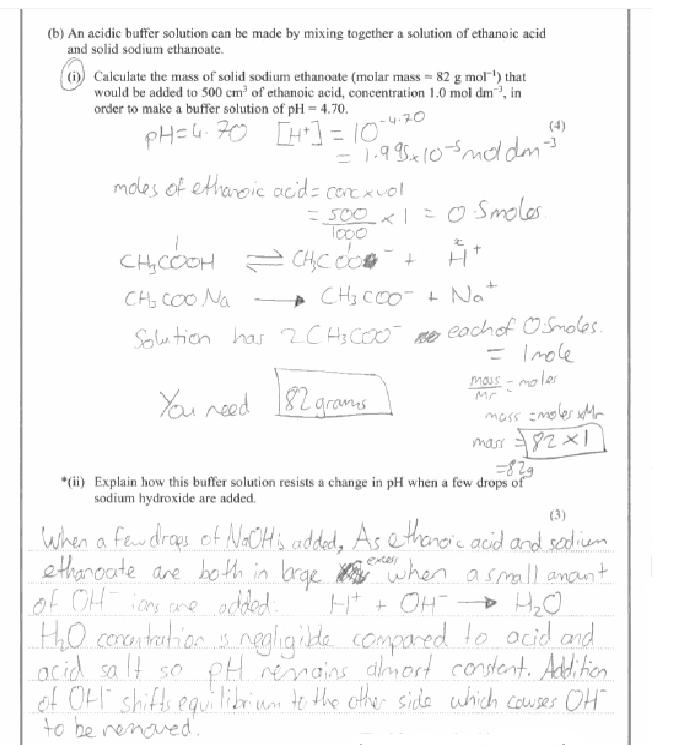 (b) An acidic buffer solution can be made by mixing together a solution of ethanoic acid
and solid sodium ethanoate.
(i) Calculate the mass of solid sodium ethanoate (molar mass = 82 g mol⁻¹) that
would be added to 500 cm³ of ethanoic acid, concentration 1.0 mol dm⁻³, in
order to make a buffer solution of pH = 4.70.
(4)
pH=4.70 [H⁺] = 10⁻⁴·⁷⁰
= 1.995x10⁻⁵ mol dm⁻³
moles of ethanoic acid = conc x vol
= 500/1000 x 1 = 0.5moles.
CH₃COOH ⇌ CH₃COO⁻ + H⁺
CH₃COONa → CH₃COO⁻ + Na⁺
Solution has 2CH₃COO⁻ each of 0.5moles.
= 1mole
mass/Mr = moles
You need 82 grams
mass = moles x Mr
mass = 82 x 1
=82g
*(ii) Explain how this buffer solution resists a change in pH when a few drops of
sodium hydroxide are added.
(3)
When a few drops of NaOH is added, As ethanoic acid and sodium
ethanoate are both in large excess when a small amount
of OH⁻ ions are added. H⁺ + OH⁻ → H₂O
H₂O concentration is negligible compared to acid and
acid salt so pH remains almost constant. Addition
of OH⁻ shifts equilibrium to the other side which causes OH⁻
to be removed.